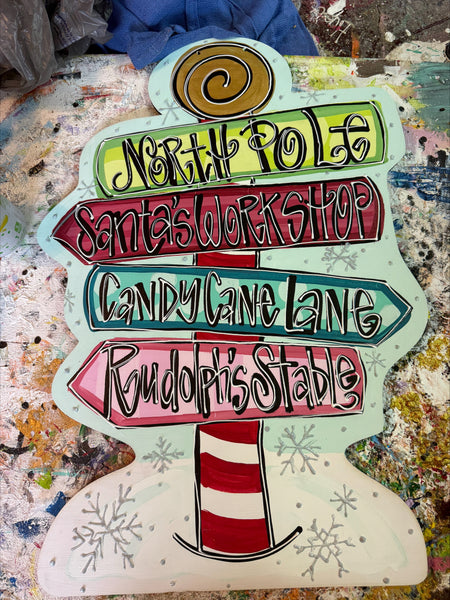 North Pole
Santa's Workshop
Candy Cane Lane
Rudolph's Stable